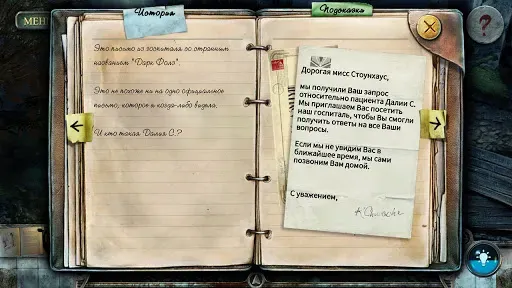 МЕН
История
Подсказки
?
Это письмо из госпиталя со странным
названием "Дарк Фолз".
Это не похоже ни на одно официальное
письмо, которое я когда-либо видела.
И кто такая Далия С.?
Дорогая мисс Стоунхаус,
мы получили Ваш запрос
относительно пациента Далии С.
Мы приглашаем Вас посетить
наш госпиталь, чтобы Вы смогли
получить ответы на все Ваши
вопросы.
Если мы не увидим Вас в
ближайшее время, мы сами
позвоним Вам домой.
С уважением,